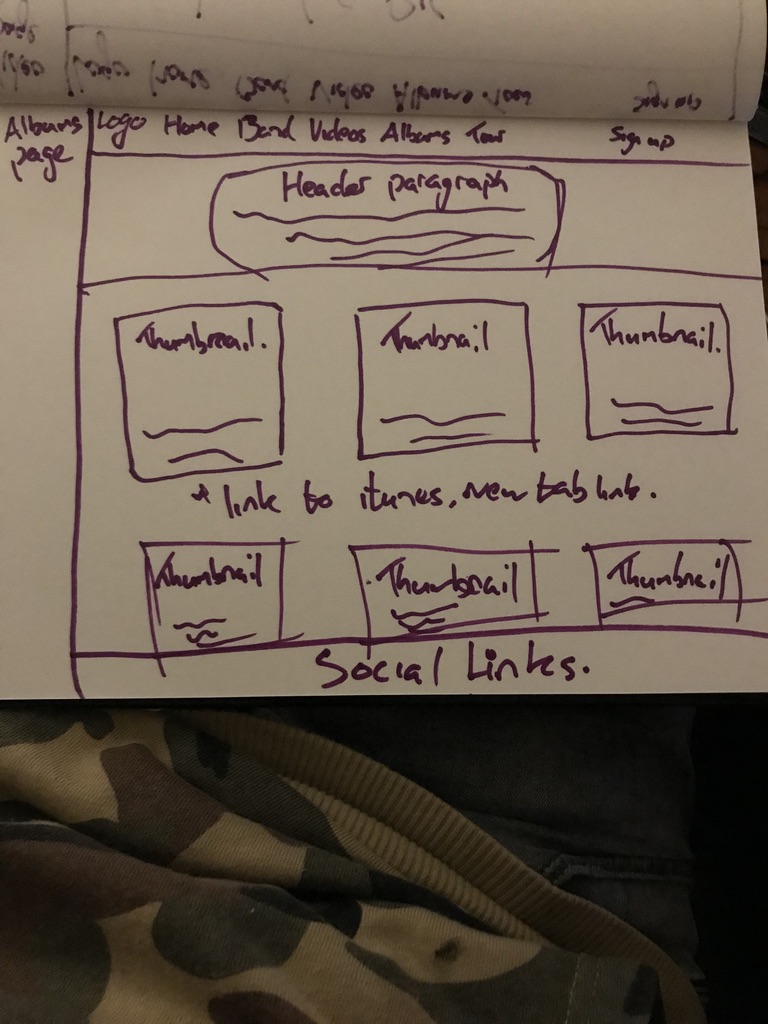 Albums page
Logo Home Band Videos Albums Tour Sign up
Header paragraph
Thumbnail. Thumbnail Thumbnail.
* link to itunes, new tab link.
Thumbnail Thumbnail Thumbnail
Social Links.